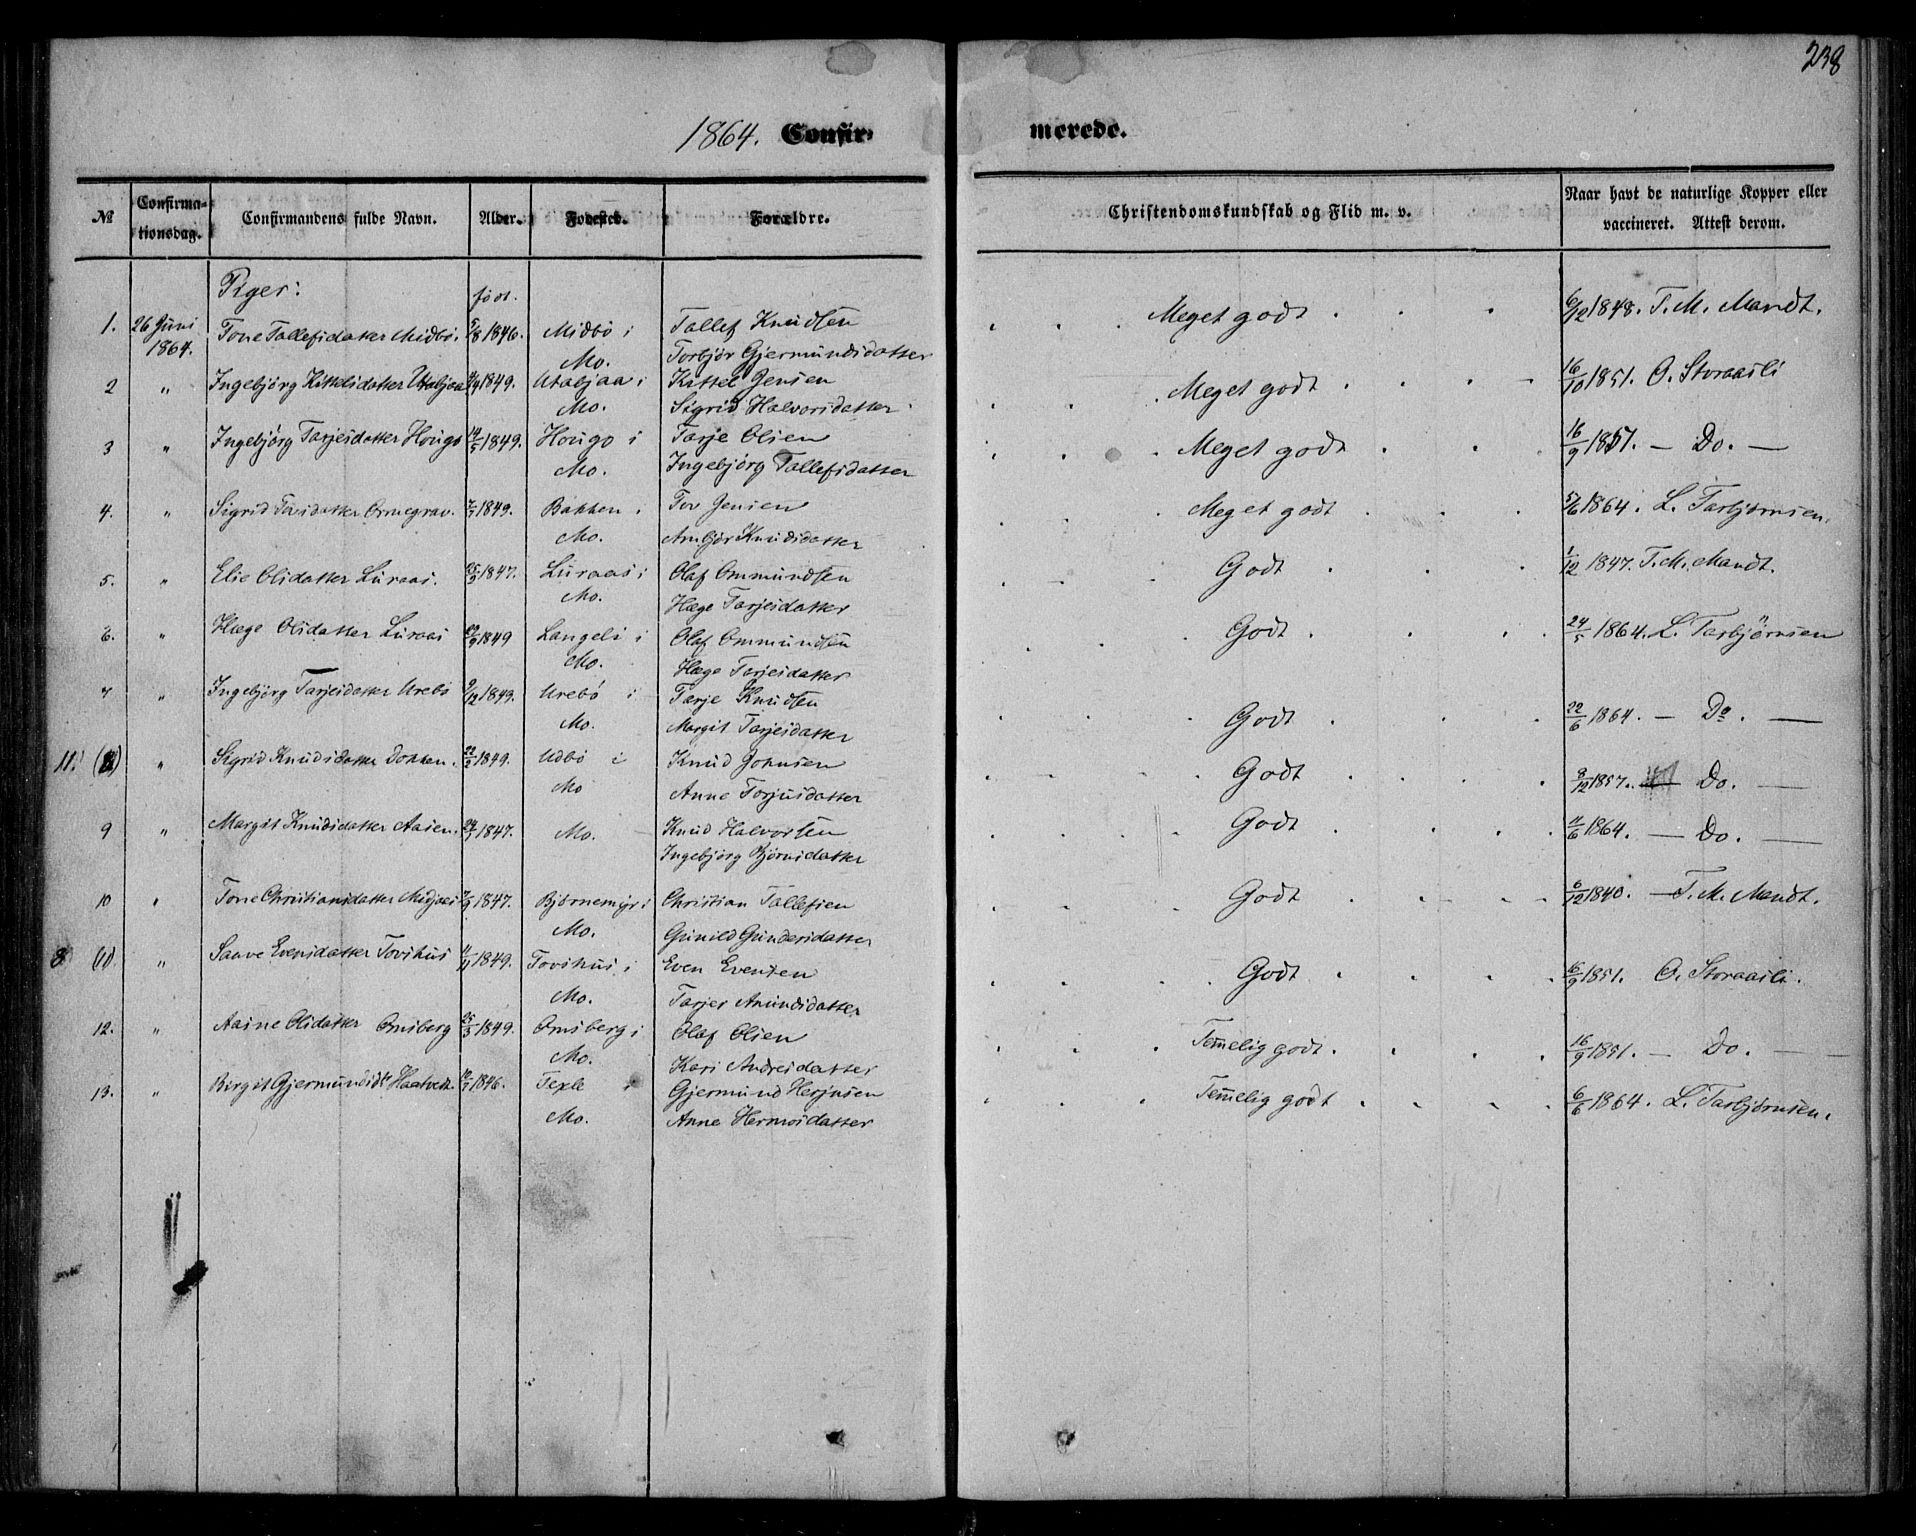 238
1864. Confir- merede.
№ Confirma- tionsdag. Confirmandens fulde Navn. Alder. Fødested. Forældre. Christendomskundskab og Flid m. v. Naar havt de naturlige Kopper eller vaccineret. Attest derom.
Piger: født.
1. 26 Juni 1864. Tone Tallefsdatter Midbö. 5/8 1846. Midbö i Mo. Tallef Knudsen Torbjör Gjermundsdatter Meget godt 6/12 1848. T. M. Mandt.
2 " Ingebjörg Kittelsdatter Utabjaa 1849. Utabjaa i Mo. Kittel Jensen Sigrid Halvorsdatter Meget godt 16/10 1851. O. Storaasli
3 " Ingebjörg Tarjeisdatter Hougo 14/5 1849. Hougo i Mo. Tarje Olsen Ingebjörg Tallefsdatter Meget godt 16/9 1857. — Do. —
4. " Sigrid Tovsdatter Ormegrav. 1849. Bakken i Mo. Tov Jensen Aanbjör Knudsdatter Meget godt 5/6 1864. L. Tarbjørnsen.
5. " Elie Olsdatter Luraas. 25/9 1847. Luraas i Mo. Olaf Ommundsen Hæge Tarjeisdatter Godt 1/12 1847. T. M. Mandt.
6. " Hæge Olsdatter Luraas 1849 Langeli i Mo. Olaf Ommundsen Hæge Tarjeisdatter Godt 24/5 1864. L. Tarbjørnsen
7 " Ingebjörg Tarjeisdatter Urebö 9/12 1849. Urebö i Mo. Tarje Knudsen Margit Tarjeisdatter Godt 22/6 1864. — Do. —
11. (8) " Sigrid Knudsdatter Dokken. 22/2 1849. Udbö i Mo Knud Johnsen Anne Torjusdatter Godt 8/12 1857. Do. —
9 " Margit Knudsdatter Aasen. 1847. Mo. Knud Halvorsen Ingebjörg Bjørnsdatter Godt 11/6 1864. — Do. —
10 " Tone Christiansdatter Midjaas 1847. Bjørnemyr i Mo. Christian Tallefsen Gunild Gundersdatter Godt 6/12 1840. — T. M. Mandt.
8 (11). " Sanve Evensdatter Tovshus 11/11 1849. Tovshus i Mo. Even Evensen Tarjer Amundsdatter Godt 16/9 1851. O. Storaasli.
12. " Aasne Olsdatter Omsberg 25/3 1849. Omsberg i Mo. Olaf Olsen Kari Andreisdatter Temmelig godt. 16/9 1851. — Do. —
13. " Birgit Gjermundsdtr Haatveit. 1846. Texle i Mo. Gjermund Herjusen Anne Hermosdatter Temmelig godt 6/6 1864. L. Tarbjørnsen.